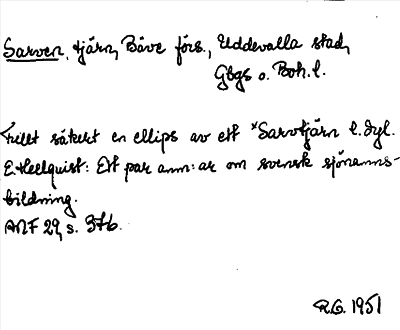 Sarven, tjärn, Bäve förs., Uddevalla stad,
Gbgs o. Boh. l.
helt säkert en ellips av ett *Sarvtjärn l. dyl.
E. Hellquist: Ett par anm:ar om svensk sjönamns-
bildning.
ANF 29, s. 376.
R.G. 1951